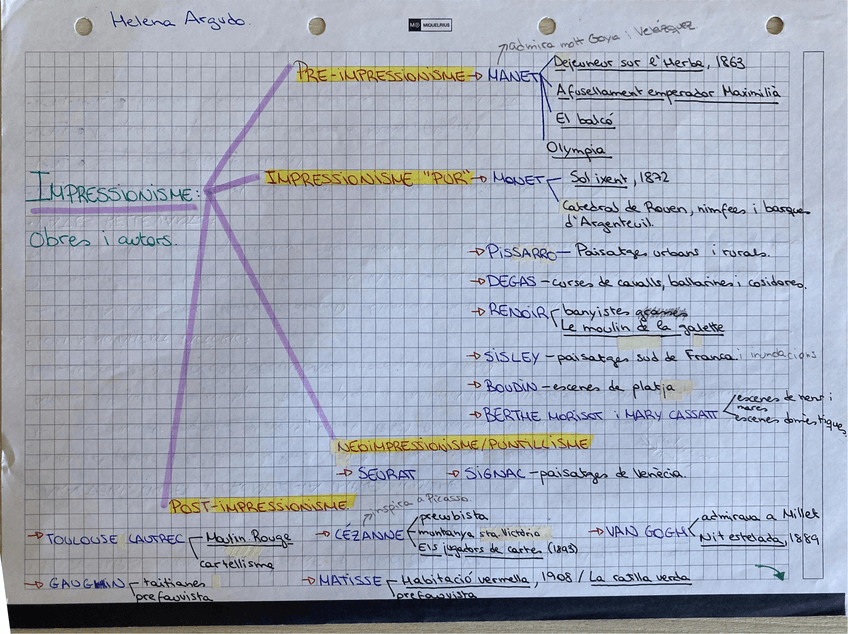 Helena Argudo.
MIQUELRIUS
admira molt Goya i Velázquez
PRE-IMPRESSIONISME → MANET
Dejeuneur sur l'Herba, 1863
Afusellament emperador Maximilià
El balcó
Olympia
IMPRESSIONISME:
Obres i autors.
IMPRESSIONISME "PUR" → MONET
Sol ixent, 1872
Catedral de Rouen, nimfees i barques
d'Argenteuil.
→ PISSARRO — Paisatges urbans i rurals.
→ DEGAS — curses de cavalls, ballarines i cosidores.
→ RENOIR
banyistes
Le moulin de la galette
→ SISLEY — paisatges sud de Franca i inundacions
→ BOUDIN — escenes de platja
→ BERTHE MORISOT i MARY CASSATT
escenes de nens i
mares
escenes domèstiques
NEOIMPRESSIONISME/PUNTILLISME
→ SEURAT → SIGNAC — paisatges de Venècia.
POST-IMPRESSIONISME
inspira a Picasso.
→ TOULOUSE LAUTREC
Moulin Rouge
cartellisme
→ CÉZANNE
precubista
muntanya sta. Victòria
Els jugadors de cartes (1893)
→ VAN GOGH
admirava a Millet
Nit estelada, 1889
→ GAUGUIN
taitianes
prefauvista
→ MATISSE
Habitació vermella, 1908 / La ratlla verda
prefauvista